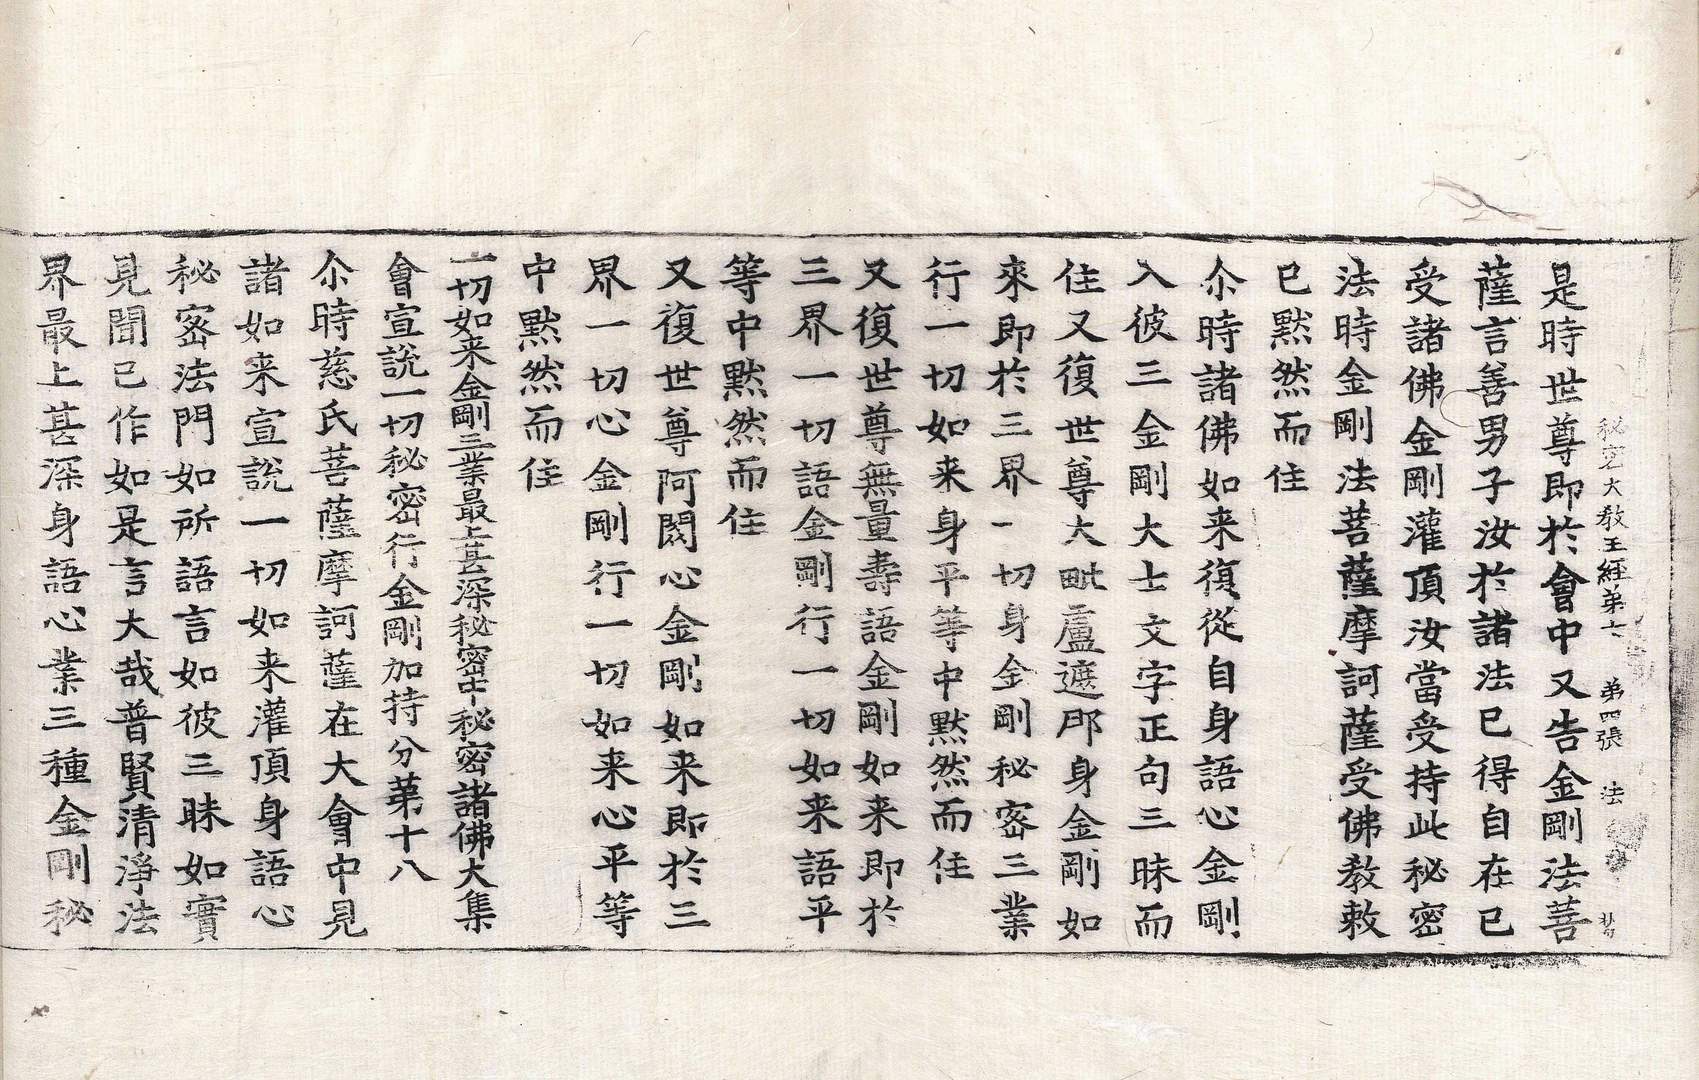 秘密大教王經第六 第四張 法
是時世尊即於會中又告金剛法菩
薩言善男子汝於諸法已得自在已
受諸佛金剛灌頂汝當受持此秘密
法時金剛法菩薩摩訶薩受佛教敕
已默然而住
尒時諸佛如来復從自身語心金剛
入彼三金剛大士文字正句三昧而
住又復世尊大毗盧遮那身金剛如
來即於三界一切身金剛秘密三業
行一切如来身平等中默然而住
又復世尊無量壽語金剛如来即於
三界一切語金剛行一切如来語平
等中默然而住
又復世尊阿閦心金剛如来即於三
界一切心金剛行一切如来心平等
中默然而住
一切如来金剛三業最上甚深秘密中秘密諸佛大集
會宣說一切秘密行金剛加持分第十八
尒時慈氏菩薩摩訶薩在大會中見
諸如来宣說一切如来灌頂身語心
秘密法門如所語言如彼三昧如實
見聞已作如是言大哉普賢清淨法
界最上甚深身語心業三種金剛秘